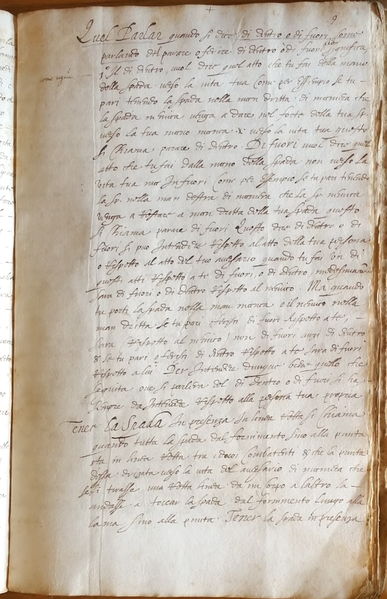 9
Quel Parlar quando si dice di dentro o di fuori, come
parlando del parare o ferire di dentro o di fuori significa
Il di dentro vuol dire quel atto che tu fai della mano
della spada verso la vita tua come per essempio se tu
pari tenendo la spada nella man dritta di maniera che
la spada nimica venga a dare nel forte della tua
verso la tua mano manca, verso la vita tua questo
si chiama parare di dentro. Di fuori vuol dire quel
atto che tu fai della mano della spada non verso la
vita tua ma in fuori come per essempio se tu pari tenendo
la sp. nella man destra di maniera che la sp. nimica
venga a man dritta della tua spada questo
si chiama parare di fuori. Questo dire di dentro o di
fuori si può intendere rispetto al atto della tua persona
o rispetto al atto del tuo avversario quando tu fai un di
questi atti rispetto a te di fuori, o di dentro medesimamente
sara di fuori o di dentro rispetto al nimico. Ma quando
tu porti la spada nella man manca e il nimico nella
man dritta se tu pari o ferisci di fuori rispetto a te,
sara rispetto al nimico non di fuori anzi di dentro
& se tu pari o ferisci di dentro rispetto a te sara di fuori
rispetto a lui. Per intendere dunque bene quello che
seguita ove si parlera del di dentro o di fuori si ha
sempre da intendere rispetto alla persona tua propria
Tener la Spada in presenza in linea retta si chiama
quando tutta la spada dal fornimento sino alla punta
sta in linea retta tra i doi combattenti & che la punta
d'essa sia verso la vita del avversario di maniera che
se si tirasse una retta linea da un corpo a l'altro la
andasse a toccar la spada dal fornimento lungo alla
lama sino alla punta. Tener la spada in presenza